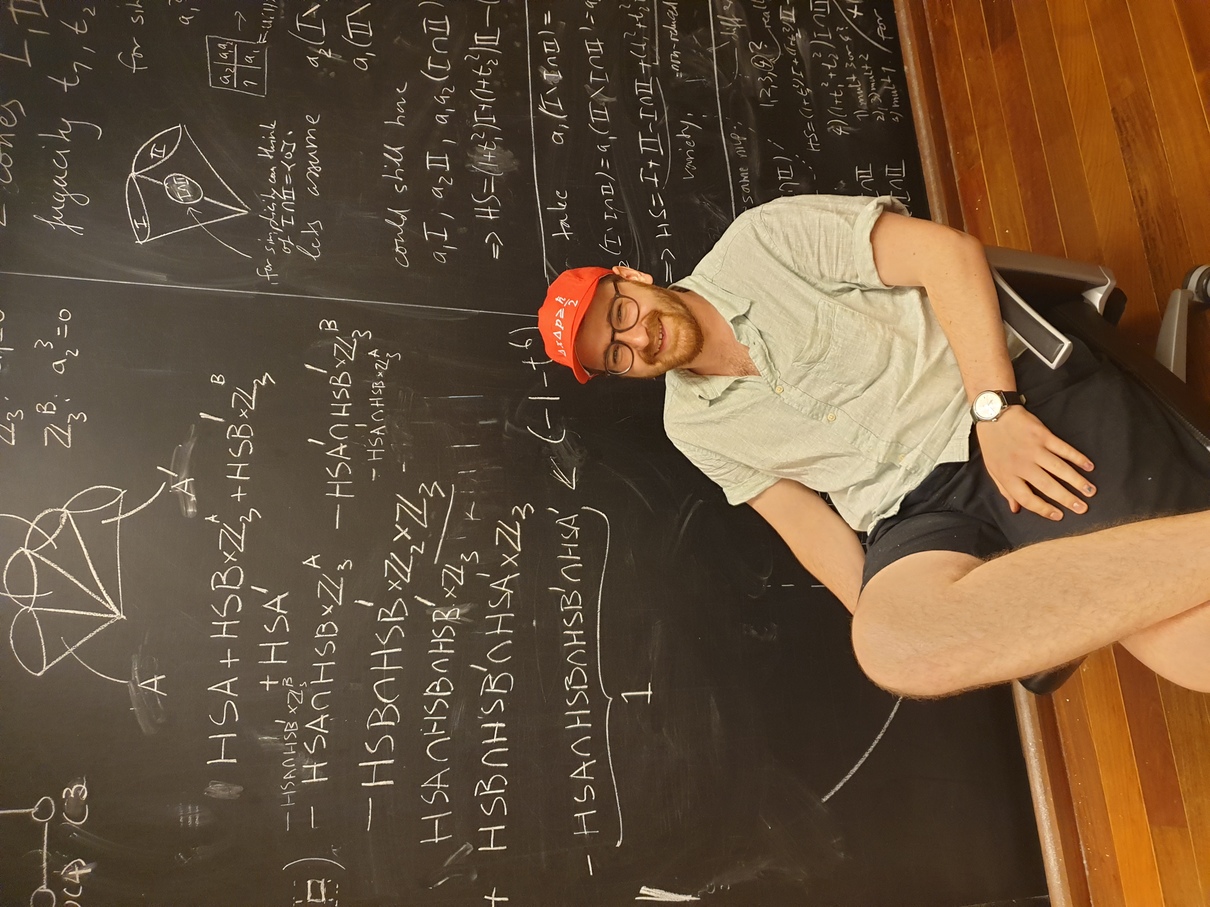 C3
ℤ₃ᴮ: a₂³=0
A
A'
HSA + HSB×ℤ₃ᴬ + HSB'×ℤ₃ᴮ
+ HSA'
- HSA∩HSB'×ℤ₃ᴮ
- HSA∩HSB×ℤ₃ᴬ - HSA'∩HSB'×ℤ₃ᴮ
- HSA'∩HSB×ℤ₃ᴬ
- HSB∩HSB'×ℤ₂×ℤ₃
HSA∩HSB∩HSB'×ℤ₃
+ HSB∩HSB'∩HSA'×ℤ₃
- HSA∩HSB∩HSB'∩HSA' ← (-1-t⁶)
1
ΔxΔp≥ħ/2
2 cones I, II
fugacity t₁, t₂
for
I
II
I∩II
a₂ a₁a₂
1 a₁
for simplicity can think
of I∩II={0}.
lets assume
a₂(I\
a₁(II\
could still have
a₁I, a₂II, a₁a₂(I∩II)
⇒ HS=(1+t₁²)I+(1+t₂²)II-(
take a₁(I\I∩II)=
(I\I∩II)=a₁(II\I∩II)=a
⇒ HS=I+II-I∩II+(t₁²+t₂²
variety, non-reduced
same
1,2,3,4?
HS=(1+t₁²)I+(1+t₂²)II-
4)(1+t₁²+t₂²)I∩II
1) mult 3 or 4?
2), 3) mult 2
mult 1.
for
∩II
∩II